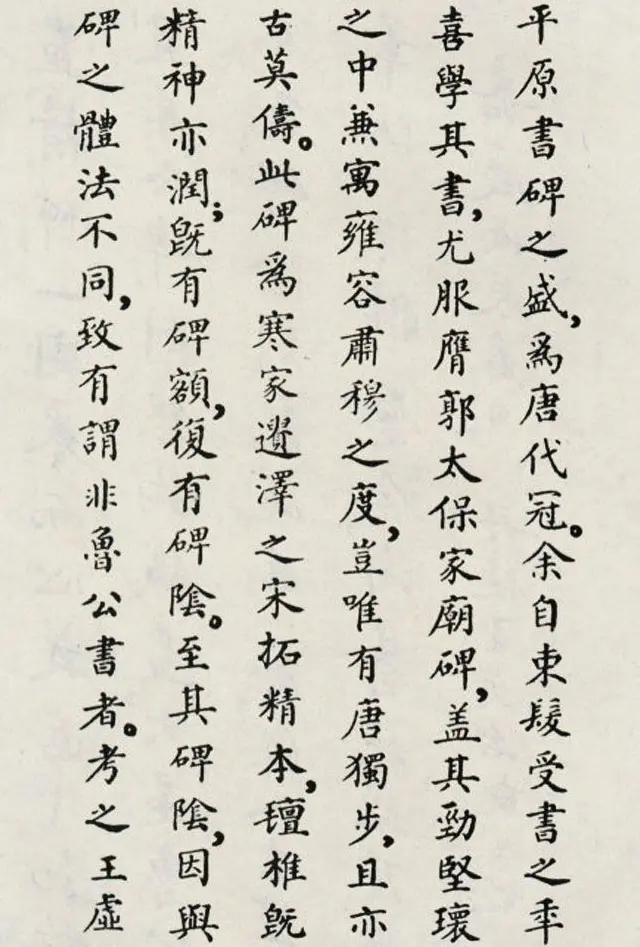 平原書碑之盛,為唐代冠。余自束髮受書之年
喜學其書,尤服膺郭太保家廟碑,盖其勁堅瓌
之中兼寓雍容肅穆之度,豈唯有唐獨步,且亦
古莫儔。此碑為寒家遺澤之宋拓精本,氊椎既
精神亦潤;既有碑額,復有碑陰。至其碑陰,因與
碑之體法不同,致有謂非魯公書者。考之王虛